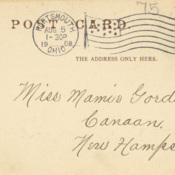 75
POST CARD.
PORTSMOUTH
AUG 5
1-30P
1908
OHIO
THE ADDRESS ONLY HERE.
Miss Mamie Gord
Canaan.
New Hamps